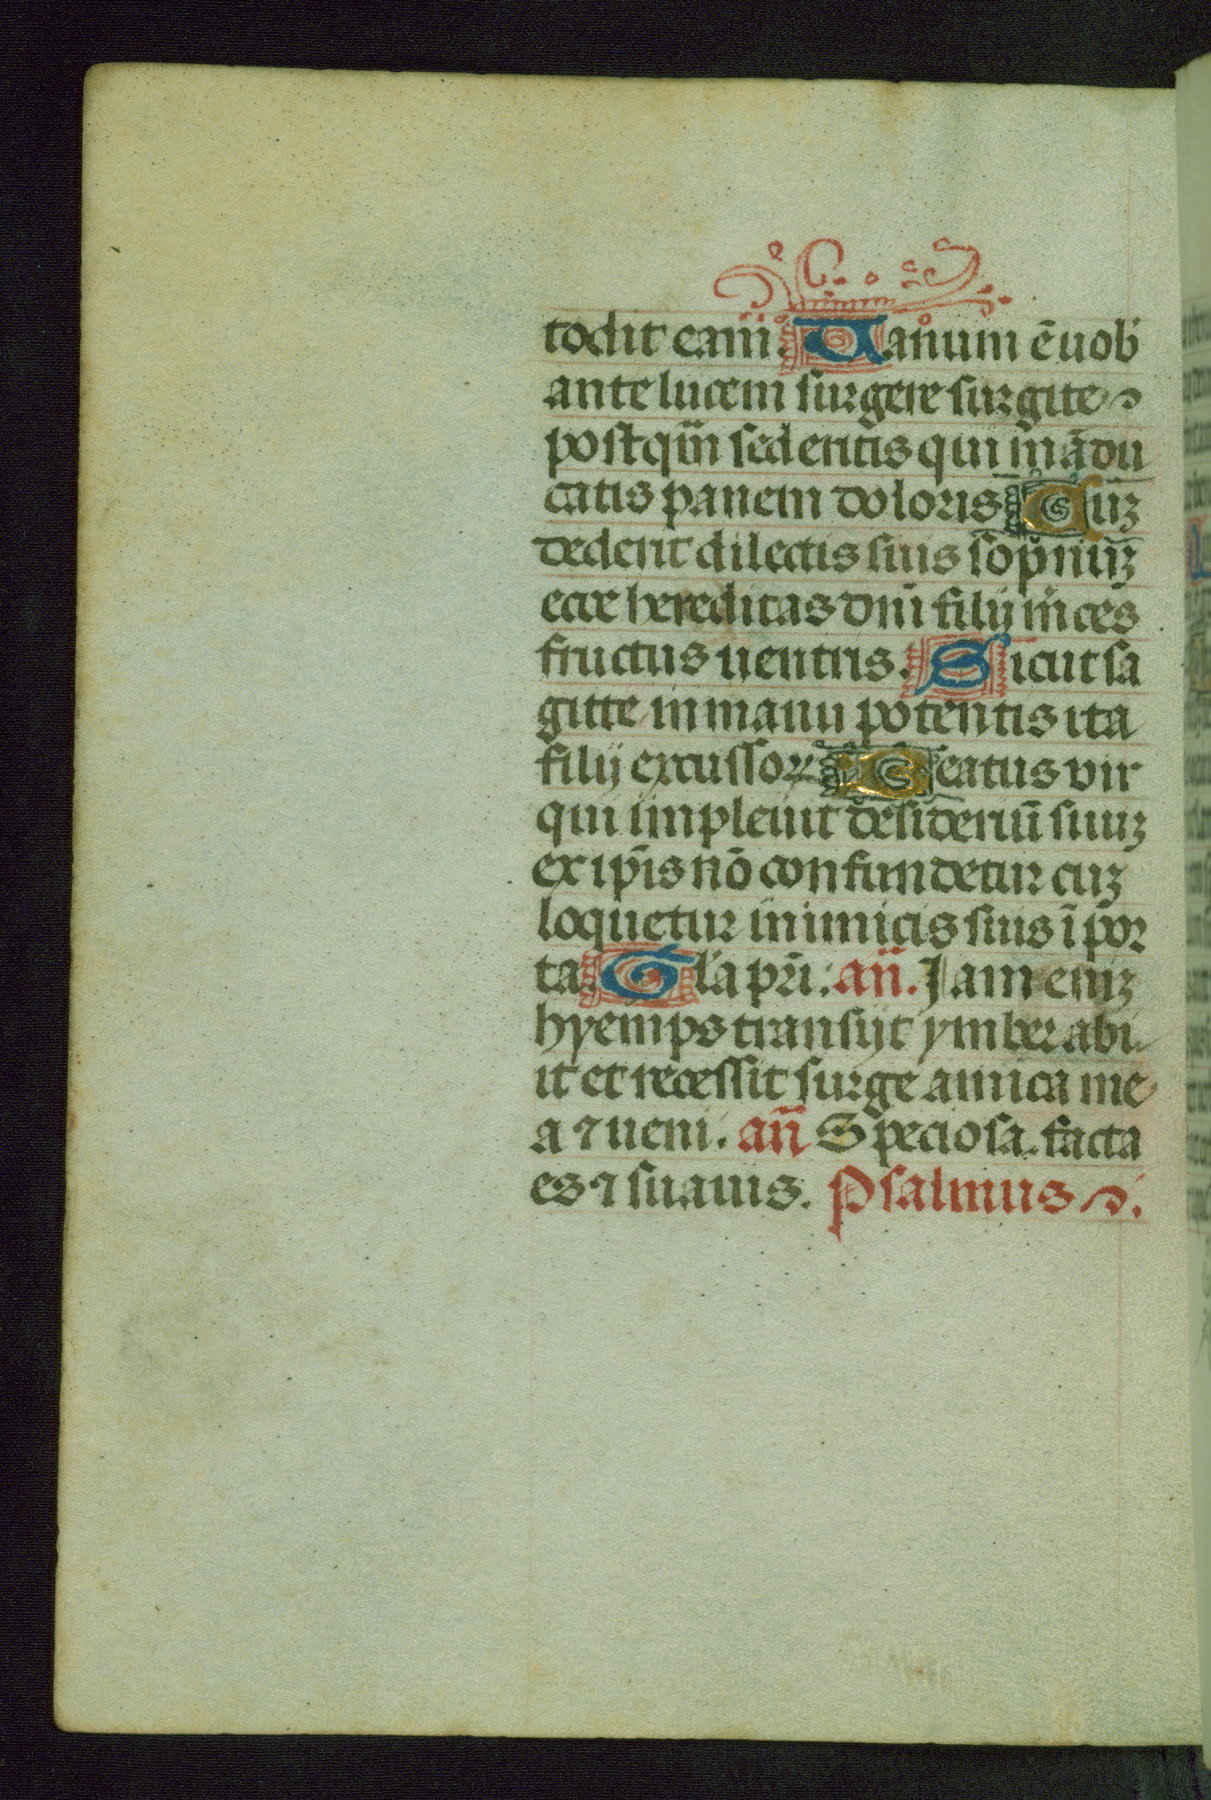 todit eam̄. Uanum ē uob̄
ante lucem surgere surgite
postq̄m sedentis qui mādu
catis panem doloris Cuꝫ
dederit dilectis suis sopniuꝫ
ecce hereditas dn̄i filij m̄ces
fructus uentris. Sicut sa
gitte in manu potentis ita
filij excussoꝝ Beatus vir
qui impleuit desideriū suuꝫ
ex ip̄is nō confundetur cuꝫ
loquetur inimicis suis ī por
ta. Gl̄a pr̄i. an̄. Jam eniꝫ
hyemps transijt ymber abi
it et recessit surge amica me
a ⁊ ueni. an̄ Speciosa facta
es ⁊ suauis. Psalmus